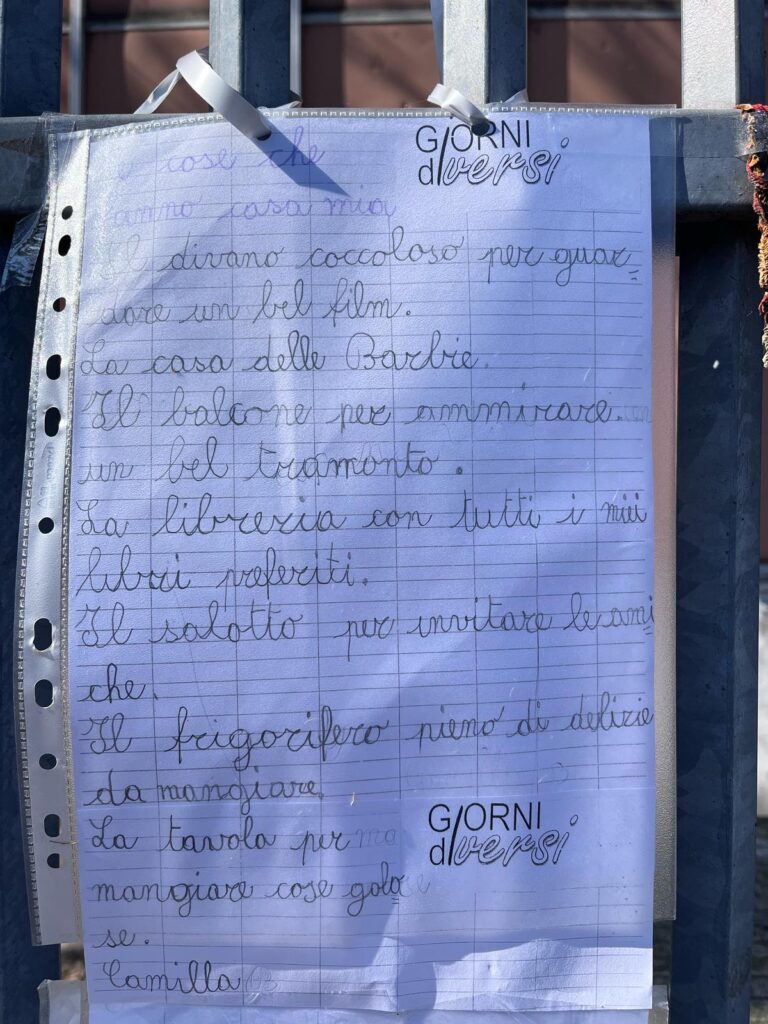 GIORNI
diversi
e cose che
anno casa mia
Il divano coccoloso per guar=
dare un bel film.
La casa delle Barbie.
Il balcone per ammirare
un bel tramonto.
La libreria con tutti i miei
libri preferiti.
Il salotto per invitare le ami=
che.
Il frigorifero pieno di delizie
da mangiare.
La tavola per
mangiare cose golo=
se.
Camilla
GIORNI
diversi